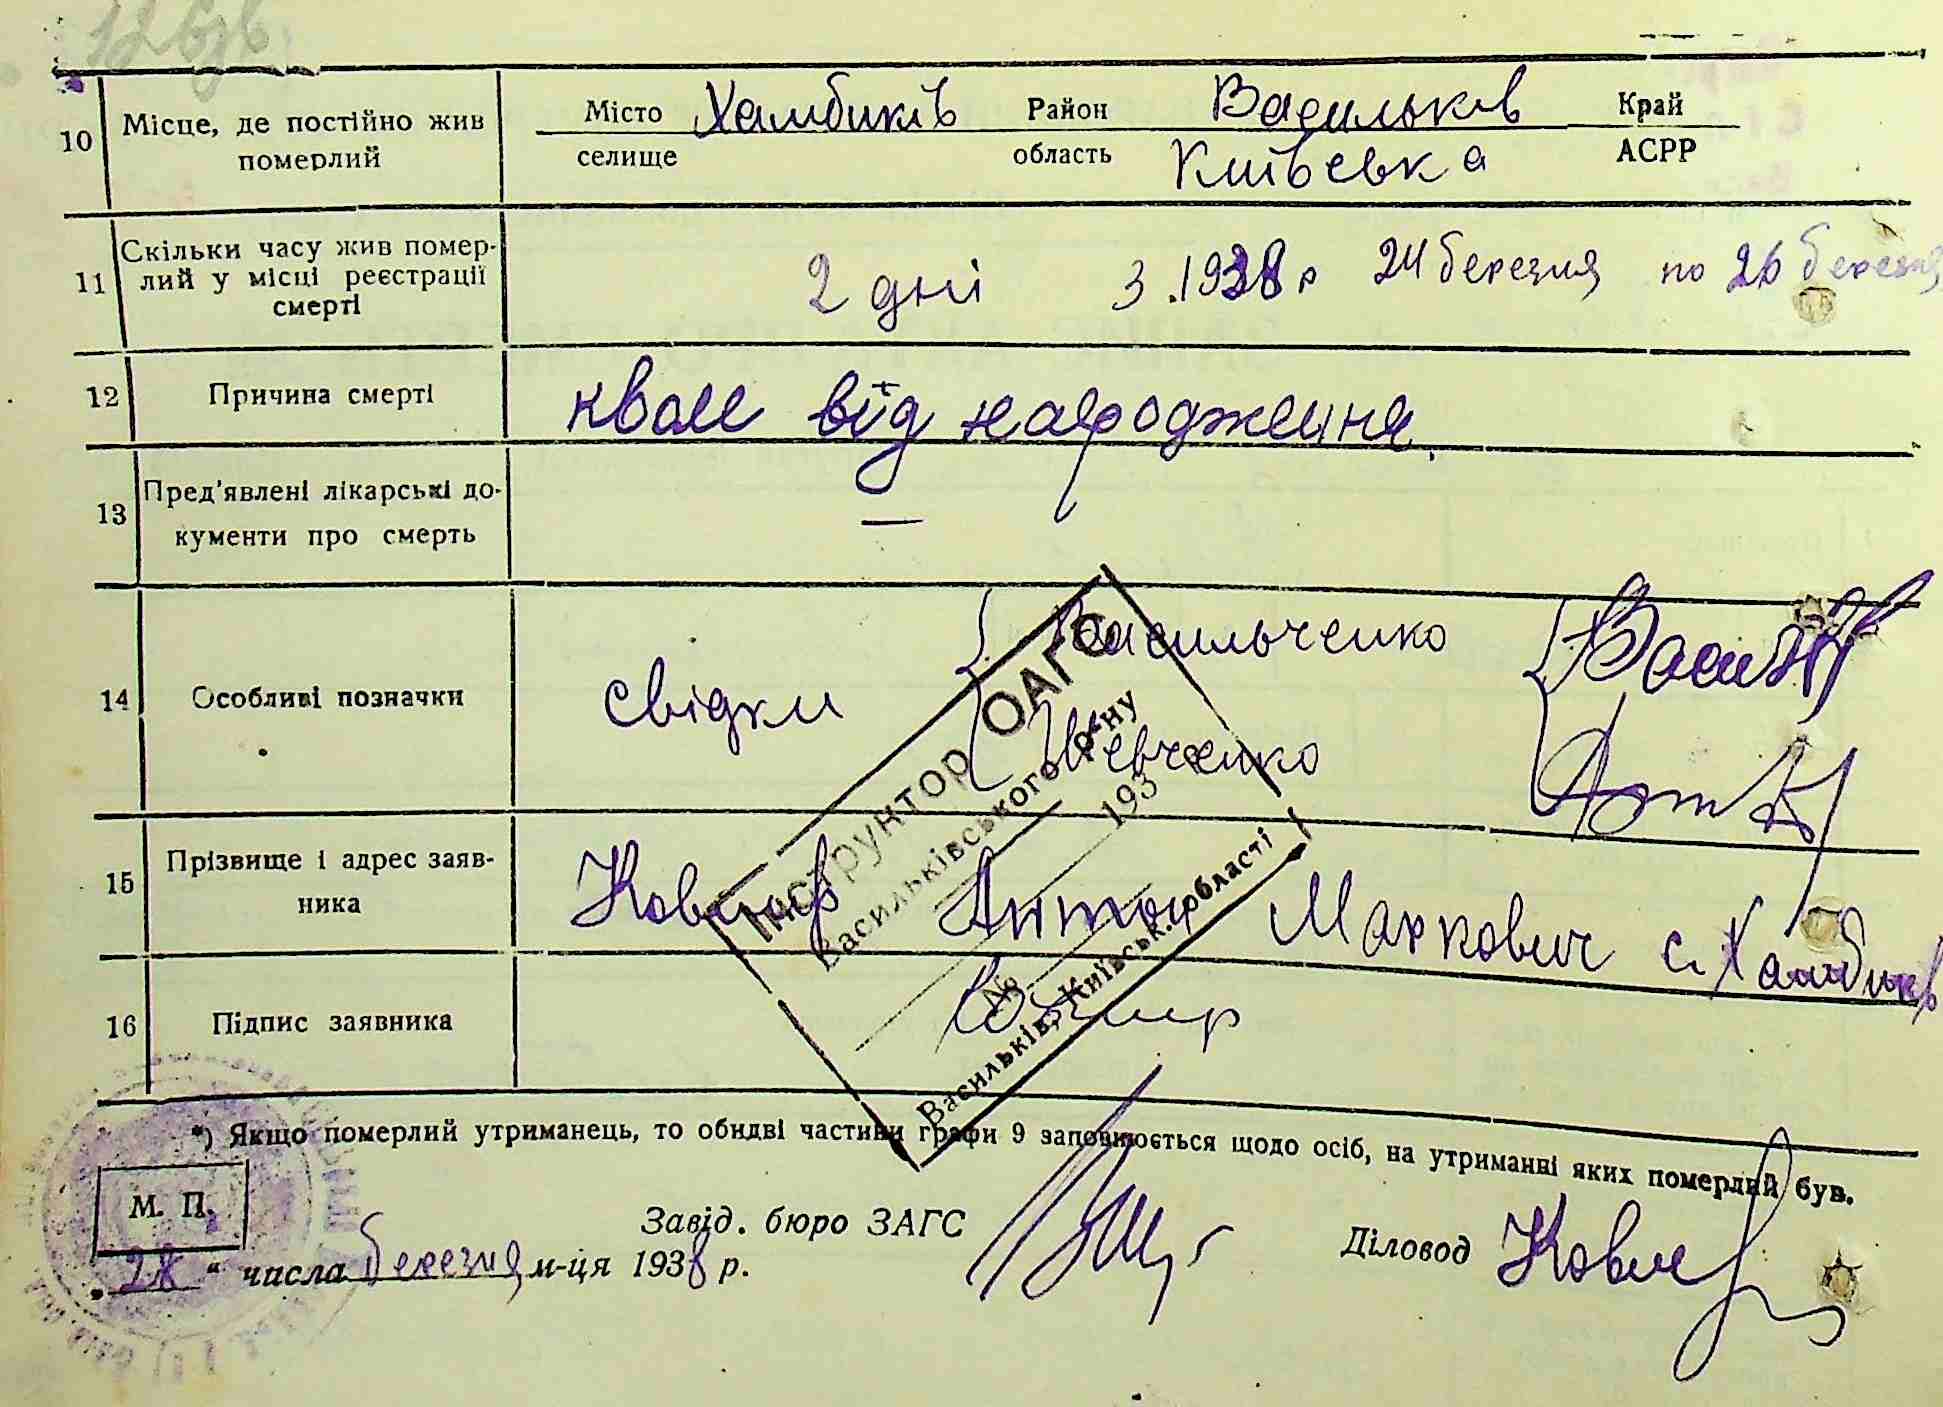 10 Місце, де постійно жив померлий
Місто Хамбиків Район Васильків Край
селище область Київська АСРР
11 Скільки часу жив помер-
лий у місці реєстрації
смерті
2 дні з 1938 р 24 березня по 26 березня
12 Причина смерті
квол від народження.
13 Пред'явлені лікарські до-
кументи про смерть
—
14 Особливі позначки
свідки Васильченко
Шевченко
Інструктор ОАГС
Васильківського р-ну
193 р.
№
Васильків, Київськ. області
15 Прізвище і адрес заяв-
ника
Антон Маркович с. Хамбиків
16 Підпис заявника
*) Якщо померлий утриманець, то обидві частини графи 9 заповнюється щодо осіб, на утриманні яких померлий був.
М. П.
Завід. бюро ЗАГС
Діловод
„28“ числа березня м-ця 1938 р.